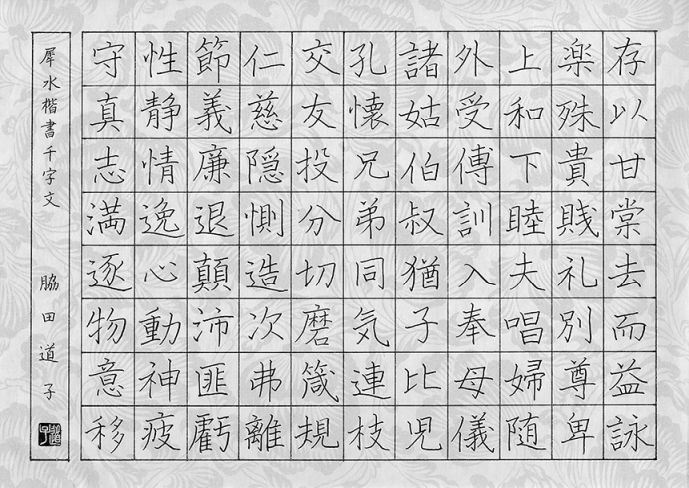 存以甘棠去而益詠
楽殊貴賤礼別尊卑
上和下睦夫唱婦随
外受傅訓入奉母儀
諸姑伯叔猶子比児
孔懐兄弟同気連枝
交友投分切磨箴規
仁慈隠惻造次弗離
節義廉退顛沛匪虧
性静情逸心動神疲
守真志満逐物意移
犀水楷書千字文 脇田道子